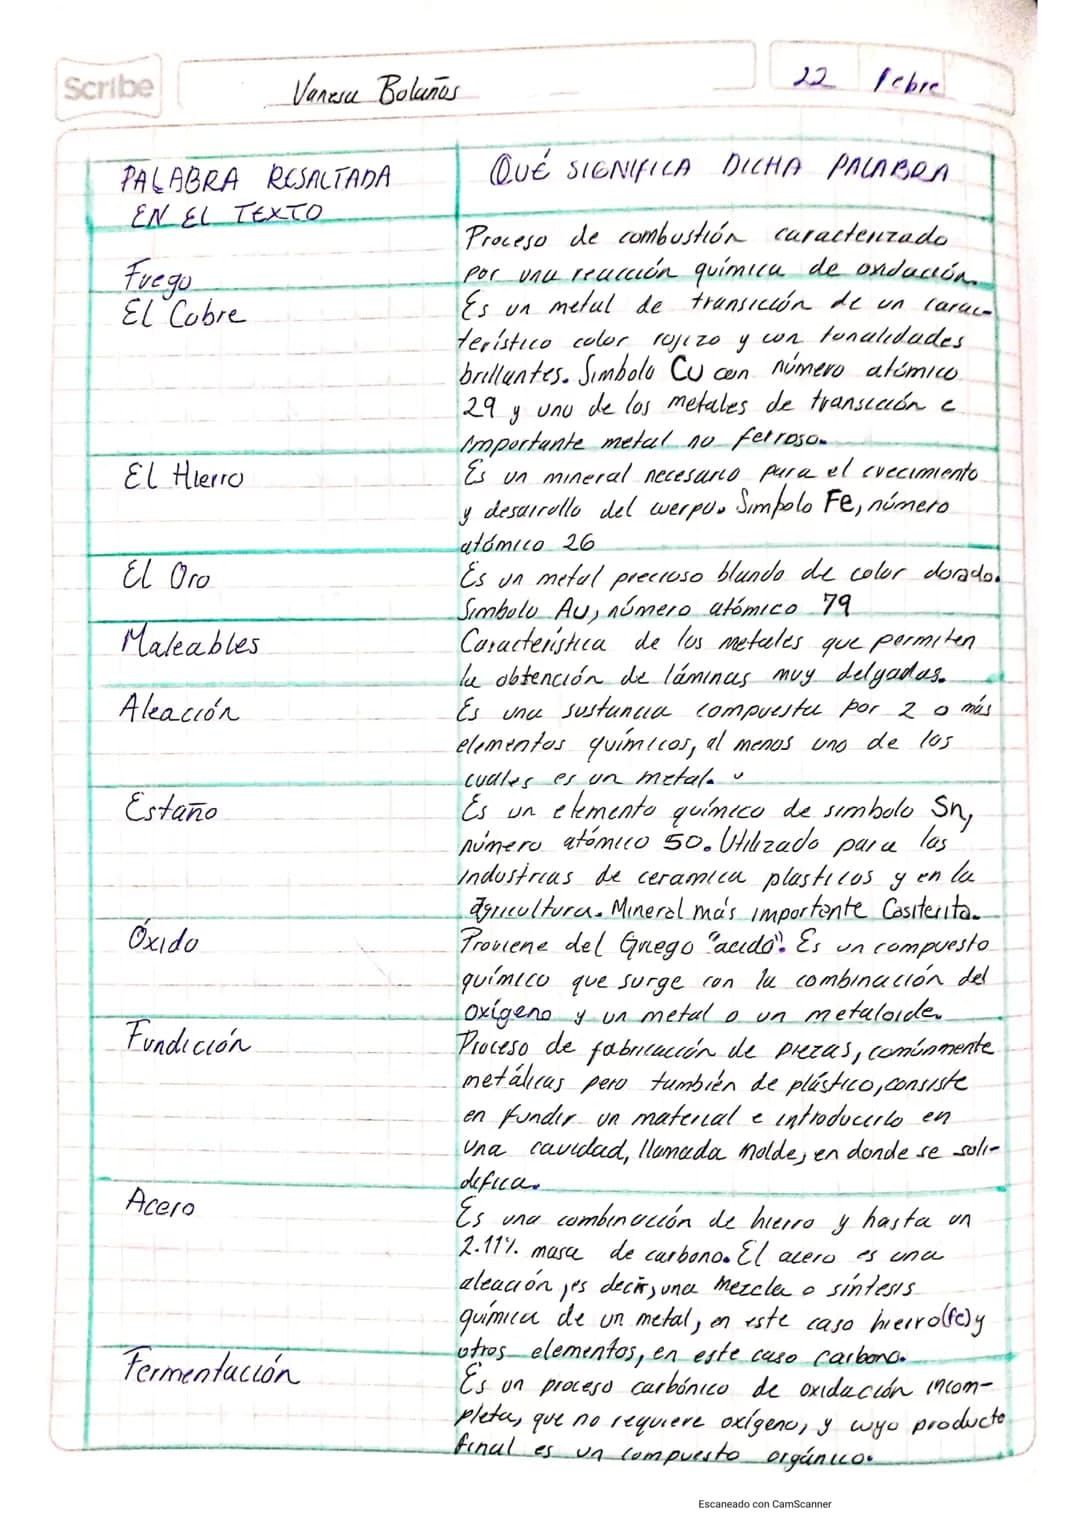 Scribe
Vanesa Bolaños
22 febre
PALABRA RESALTADA
EN EL TEXTO
QUÉ SIGNIFICA DICHA PALABRA
Fuego
Proceso de combustión caracterizado
por una reacción química de oxidación.
El Cobre
Es un metal de transición de un carac-
terístico color rojizo y con tonalidades
brillantes. Simbolo Cu con número atómico
29 y uno de los metales de transición e
importante metal no ferroso.
El Hierro
Es un mineral necesario para el crecimiento
y desarrollo del cuerpo. Simbolo Fe, número
atómico 26
El Oro
Es un metal precioso blando de color dorado.
Simbolo Au, número atómico 79
Maleables
Característica de los metales que permiten
la obtención de láminas muy delgadas.
Aleación
Es una sustancia compuesta por 2 o más
elementos químicos, al menos uno de los
cuales es un metal.
Estaño
Es un elemento químico de simbolo Sn,
número atómico 50. Utilizado para las
industrias de ceramica plasticos y en la
agricultura. Mineral más importante Casiterita.
Óxido
Proviene del Griego "acido". Es un compuesto
químico que surge con la combinación del
oxígeno y un metal o un metaloide.
Fundición
Proceso de fabricación de piezas, comúnmente
metálicas pero también de plástico, consiste
en fundir un material e introducirlo en
una cavidad, llamada molde, en donde se soli-
difica.
Acero
Es una combinación de hierro y hasta un
2.11% masa de carbono. El acero es una
aleación, es decir, una mezcla o síntesis
química de un metal, en este caso hierro(fe) y
otros elementos, en este caso carbono.
Fermentación
Es un proceso carbónico de oxidación incom-
pleta, que no requiere oxígeno, y cuyo producto
final es un compuesto orgánico.
Escaneado con CamScanner